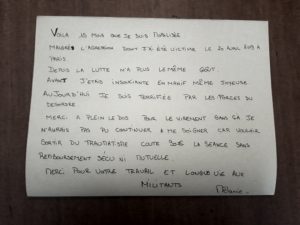 VOILÀ 15 MOIS QUE JE SUIS MUTILÉE
MALGRÉS L'AGRESSION DONT J'AI ÉTÉ VICTIME LE 20 AVRIL 2019 À
PARIS.
DEPUIS LA LUTTE N'A PLUS LE MÊME GOÛT.
AVANT J'ÉTAIS INSOUCIANTE EN MANIF MÊME JOYEUSE
AUJOURD'HUI JE SUIS TERRIFIÉE PAR LES FORCES DU
DESORDRE
MERCI A PLEIN LE DOS POUR LE VIREMENT SANS ÇA JE
N'AURAIS PAS PU CONTINUER A ME SOIGNER CAR VOULOIR
SORTIR DU TRAUMATISME COUTE 90€ LA SEANCE SANS
REMBOURSEMENT SÉCU NI MUTUELLE
MERCI POUR VOTRE TRAVAIL ET LONGUE VIE AUX
MILITANTS
Mélanie